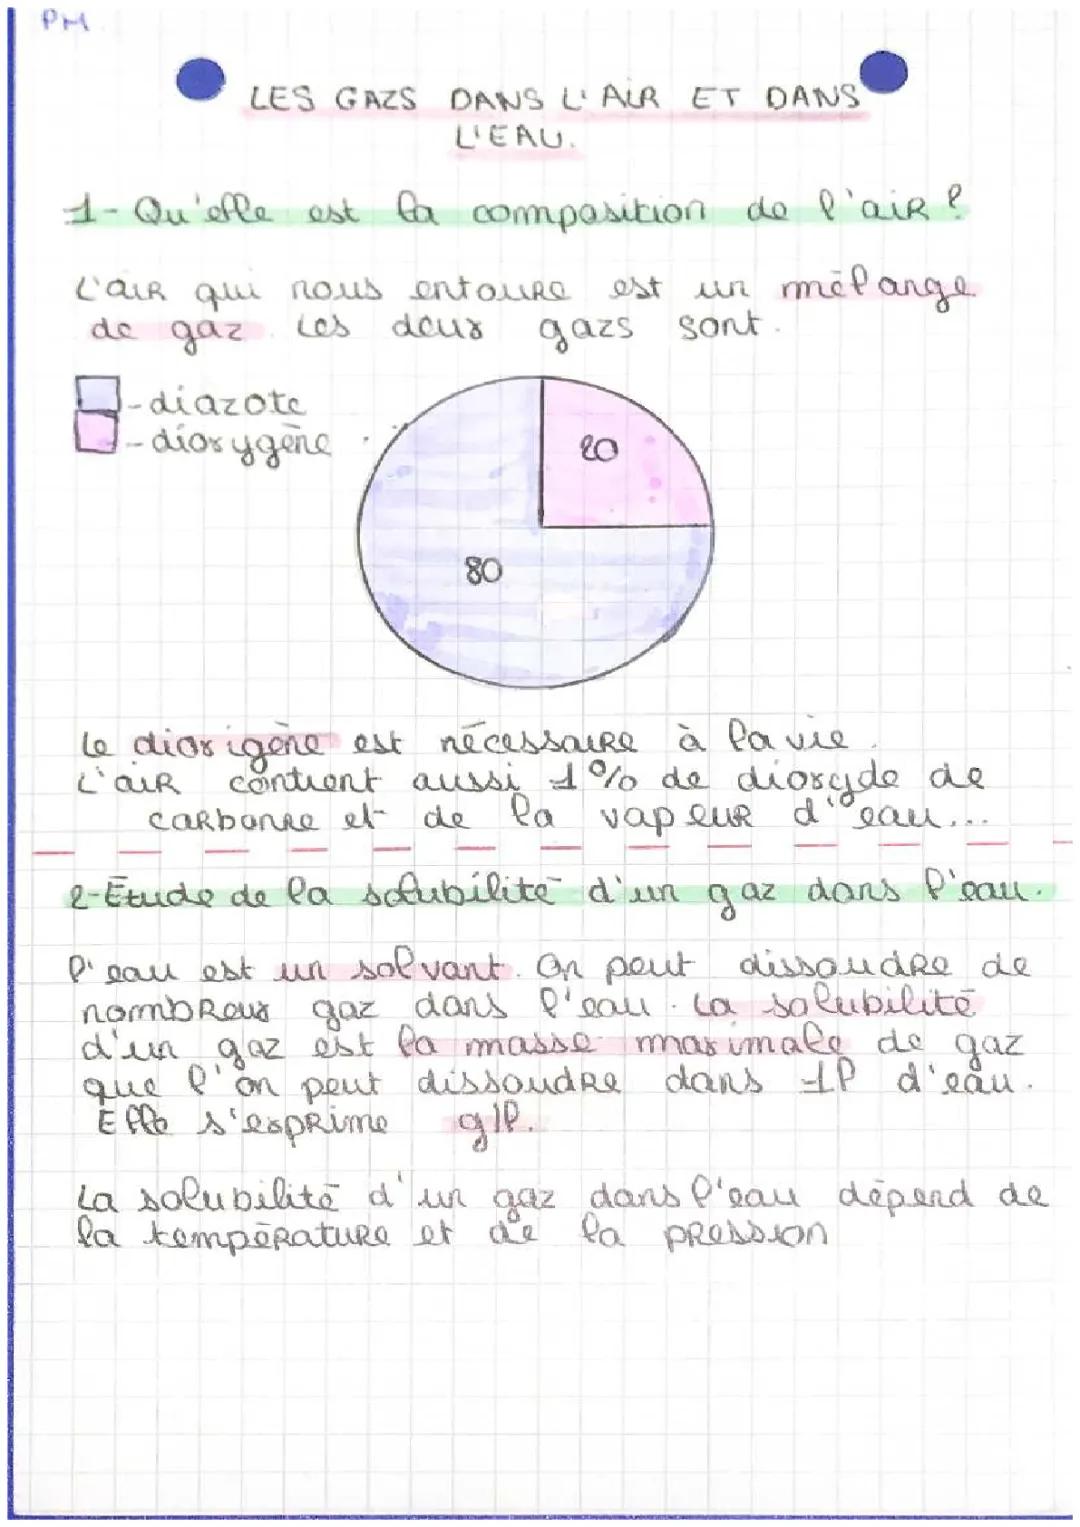 PM
LES GAZS DANS L'AIR ET DANS
L'EAU.
1- Qu'elle est la composition de l'air ?
L'air qui nous entoure est un mélange
de gaz. Les deux gazs sont.
-diazote
-dioxygène
20
80
Le dioxigène est nécessaire à la vie.
L'air contient aussi 1% de dioxyde de
carbonne et de la vapeur d'eau...
2-Étude de la solubilité d'un gaz dans l'eau.
l'eau est un solvant. On peut dissoudre de
nombreux gaz dans l'eau. La solubilité
d'un gaz est la masse maximale de gaz
que l'on peut dissoudre dans 1l d'eau.
Elle s'exprime g/l.
La solubilité d'un gaz dans l'eau dépend de
la température et de la pression